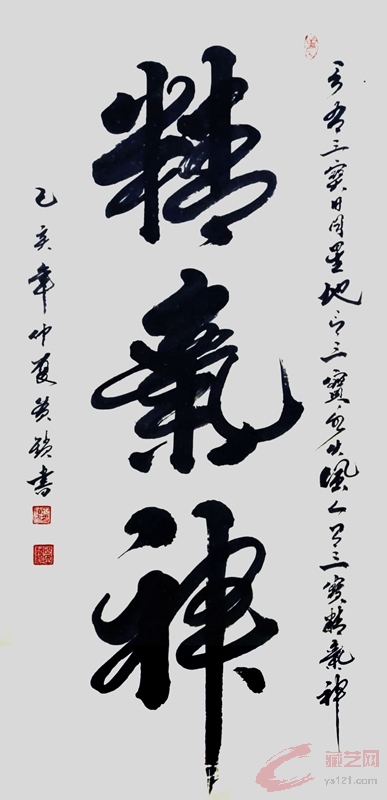 天有三寶日月星地有三寶水火風人有三寶精氣神
精氣神
己亥年仲夏 書
藏艺网
ys121.com